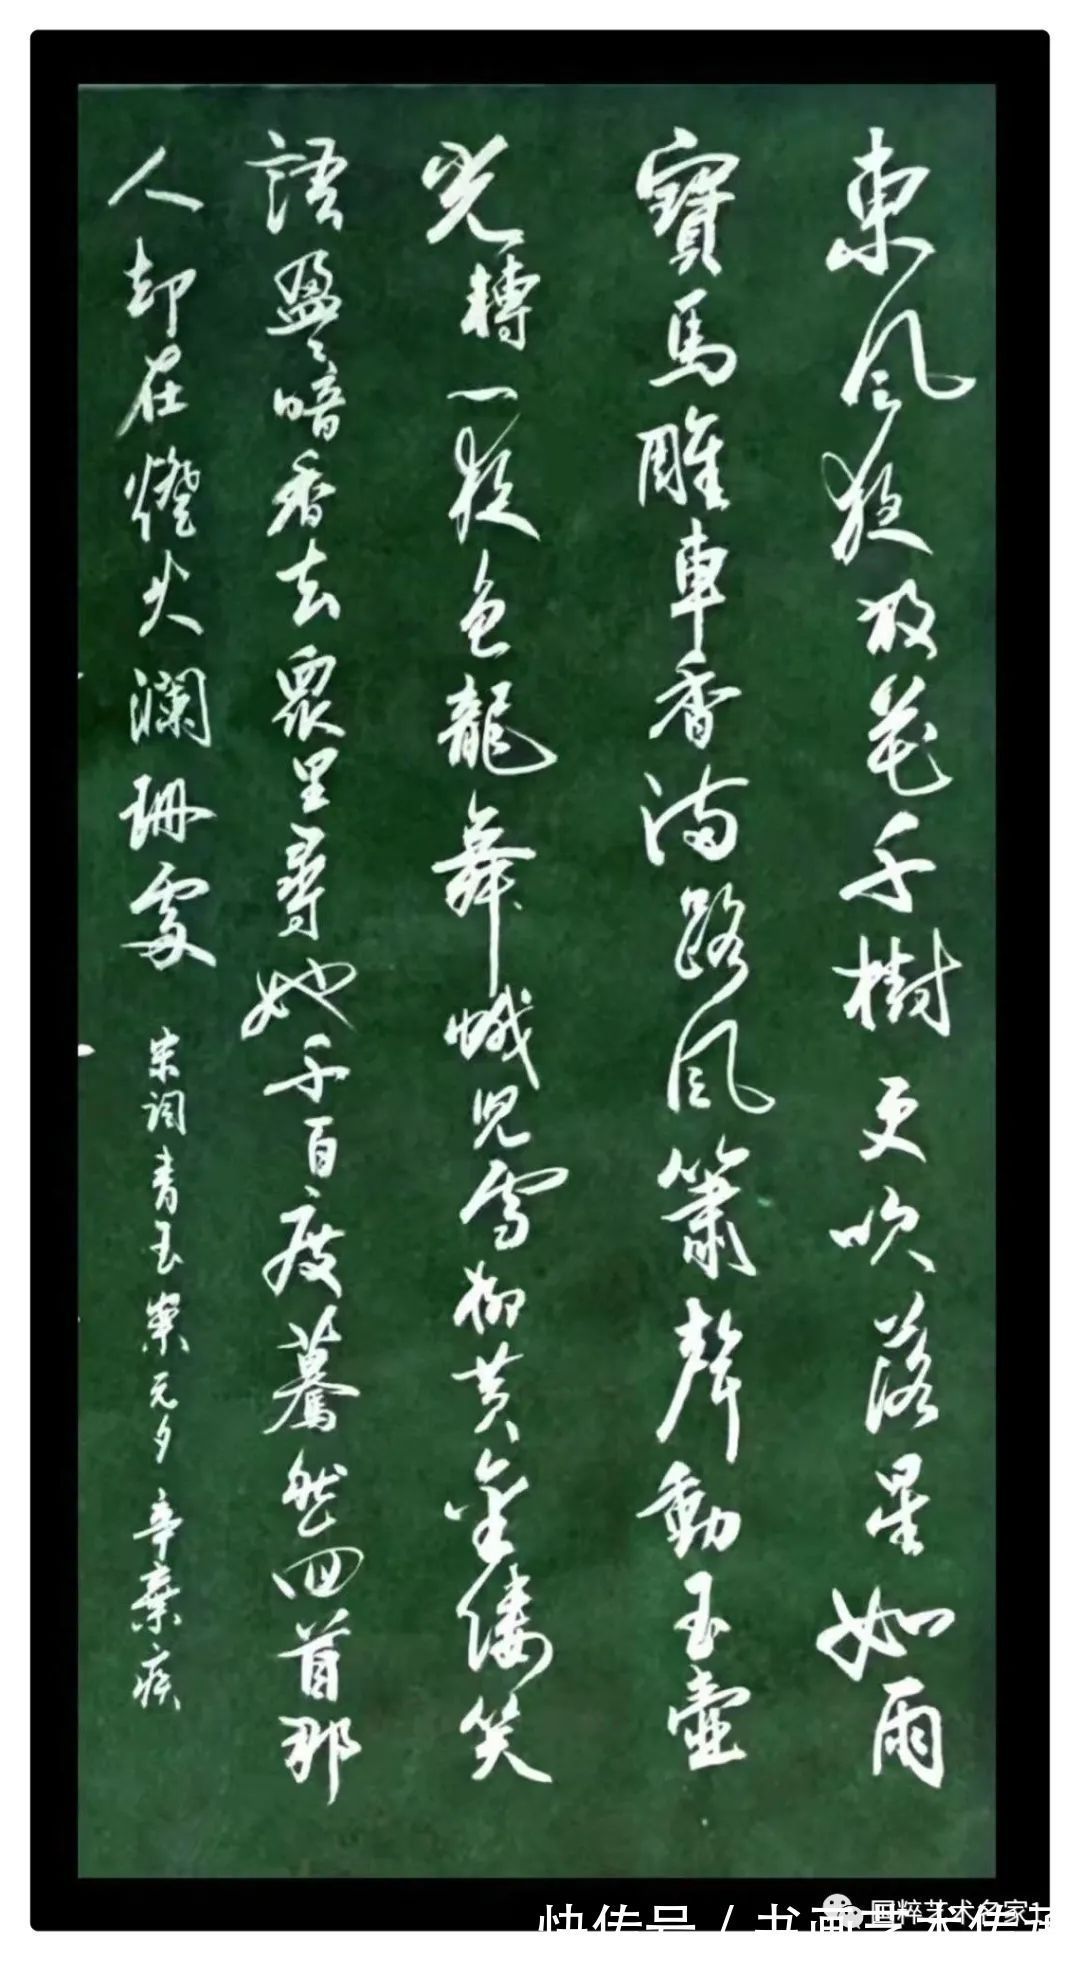 東风夜放花千樹更吹落星如雨
寶馬雕車香满路风簫聲動玉壺
光轉一夜鱼龍舞蛾兒雪柳黄金缕笑
語盈々暗香去眾里尋她千百度驀然回首那
人却在燈火瀾珊處 宋词青玉案元夕 辛棄疾
国粹艺术名家1
快传号 / 书画艺术传